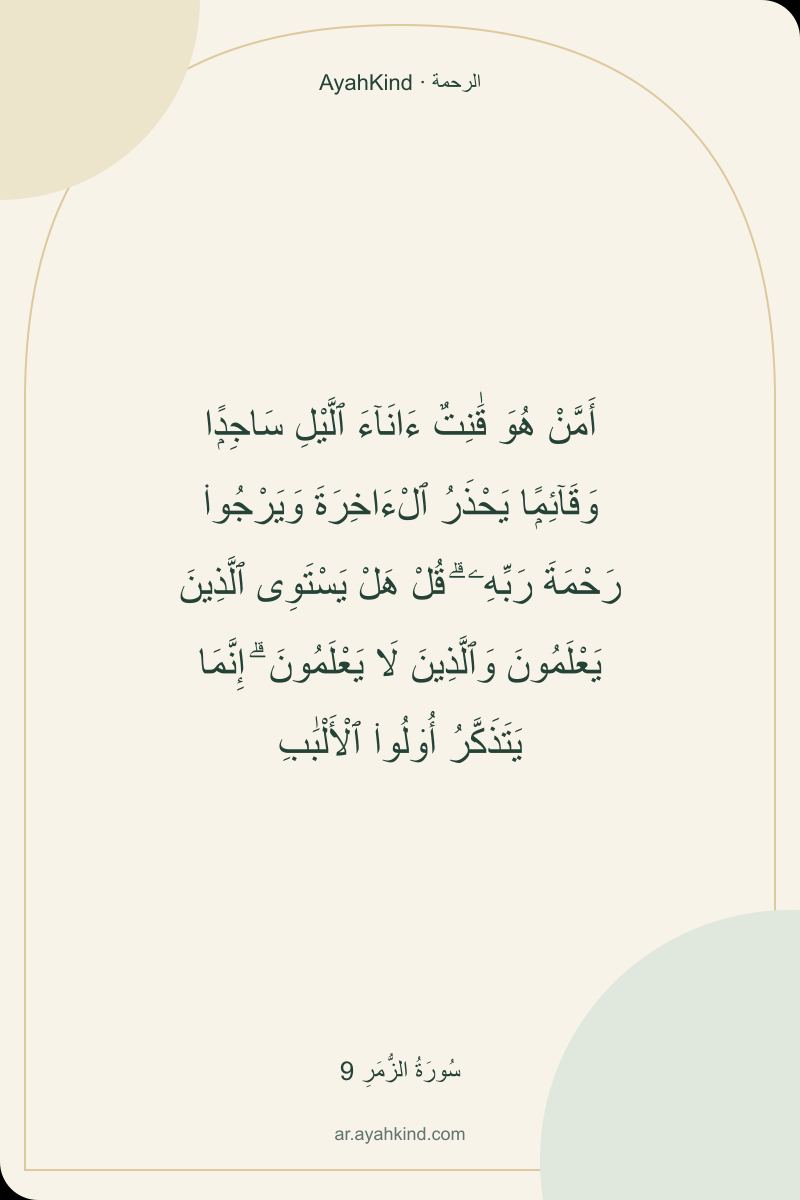 AyahKind · الرحمة
أَمَّنْ هُوَ قَٰنِتٌ ءَانَآءَ ٱلَّيْلِ سَاجِدًۭا
وَقَآئِمًۭا يَحْذَرُ ٱلْءَاخِرَةَ وَيَرْجُوا۟
رَحْمَةَ رَبِّهِۦ ۗ قُلْ هَلْ يَسْتَوِى ٱلَّذِينَ
يَعْلَمُونَ وَٱلَّذِينَ لَا يَعْلَمُونَ ۗ إِنَّمَا
يَتَذَكَّرُ أُو۟لُوا۟ ٱلْأَلْبَٰبِ
سُورَةُ الزُّمَرِ 9
ar.ayahkind.com